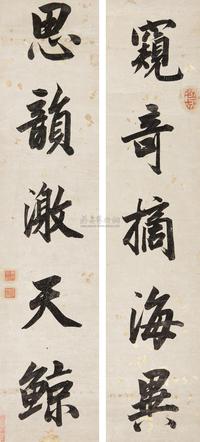 窺奇摘海異
思韻激天鯨